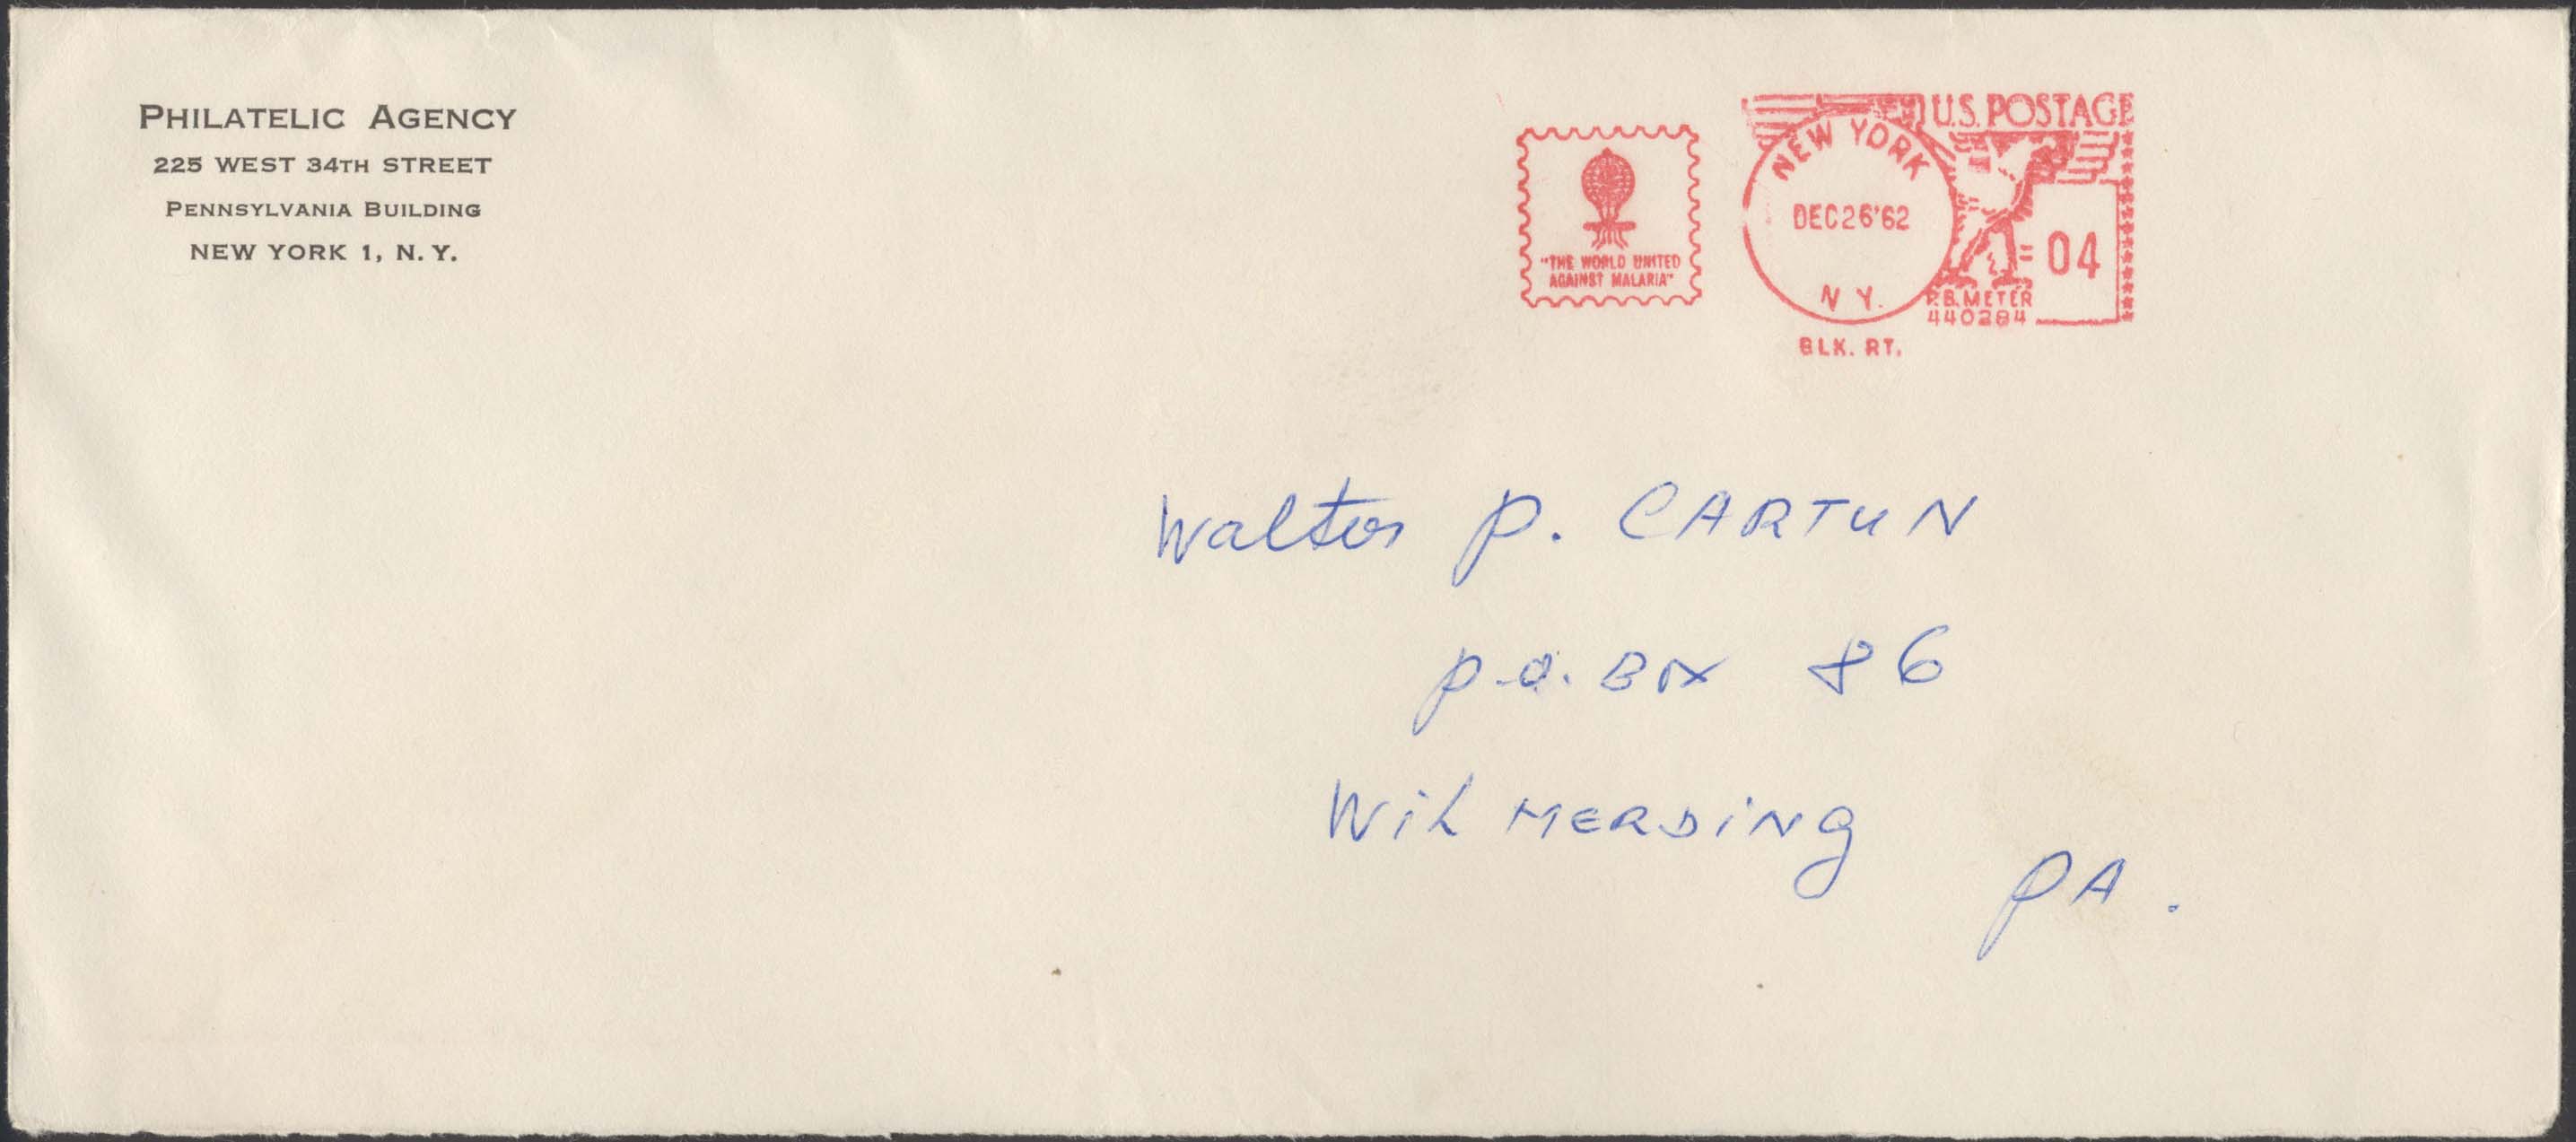 PHILATELIC AGENCY
225 WEST 34TH STREET
PENNSYLVANIA BUILDING
NEW YORK 1, N. Y.
"THE WORLD UNITED
AGAINST MALARIA"
NEW YORK
DEC 26 '62
N Y.
BLK. RT.
U.S. POSTAGE
04
P.B. METER
440284
Walter P. CARTUN
P.O. BOX 86
WilMERDiNg
PA.